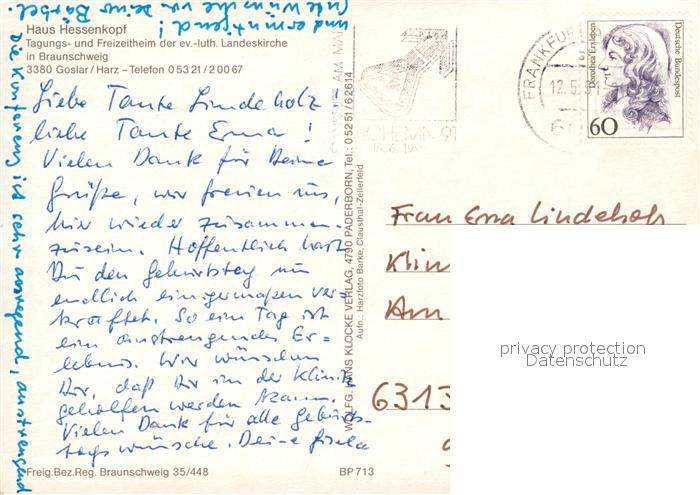 Haus Hessenkopf
Tagungs- und Freizeitheim der ev.-luth. Landeskirche
in Braunschweig
3380 Goslar/Harz – Telefon 0 53 21 / 2 00 67
Liebe Tante Lindeholz
liebe Tante Erna!
Vielen Dank für Deine
Grüße, wir freuen uns,
hier wieder zusammen-
zusein. Hoffentlich hast
Du den Geburtstag nun
endlich einigermaßen ver=
kraftet. So ein Tag ist
ein anstrengendes Er=
lebnis. Wir wünschen
Dir, daß Dir in der Klinik
geholfen werden kann.
Vielen Dank für alle Geburts-
tagswünsche. Deine Gisela
Die Konferenz ist sehr anregend, anstrengend
und ermutigend!
Gute Wünsche von Deiner Bärbel.
Freig.Bez.Reg. Braunschweig 35/448
BP 713
WOLFG. HANS KLOCKE VERLAG, 4790 PADERBORN, Tel.: 0 52 51 / 6 26 14
Aufn.: Harzfoto Barke, Clausthal-Zellerfeld
AM MAIN
ACHEMA 91
FRANKFUR
12.5.
Dorothea Erxleben
Deutsche Bundespost
60
Frau Erna Lindeholz
Klin
Am
6313
privacy protection
Datenschutz